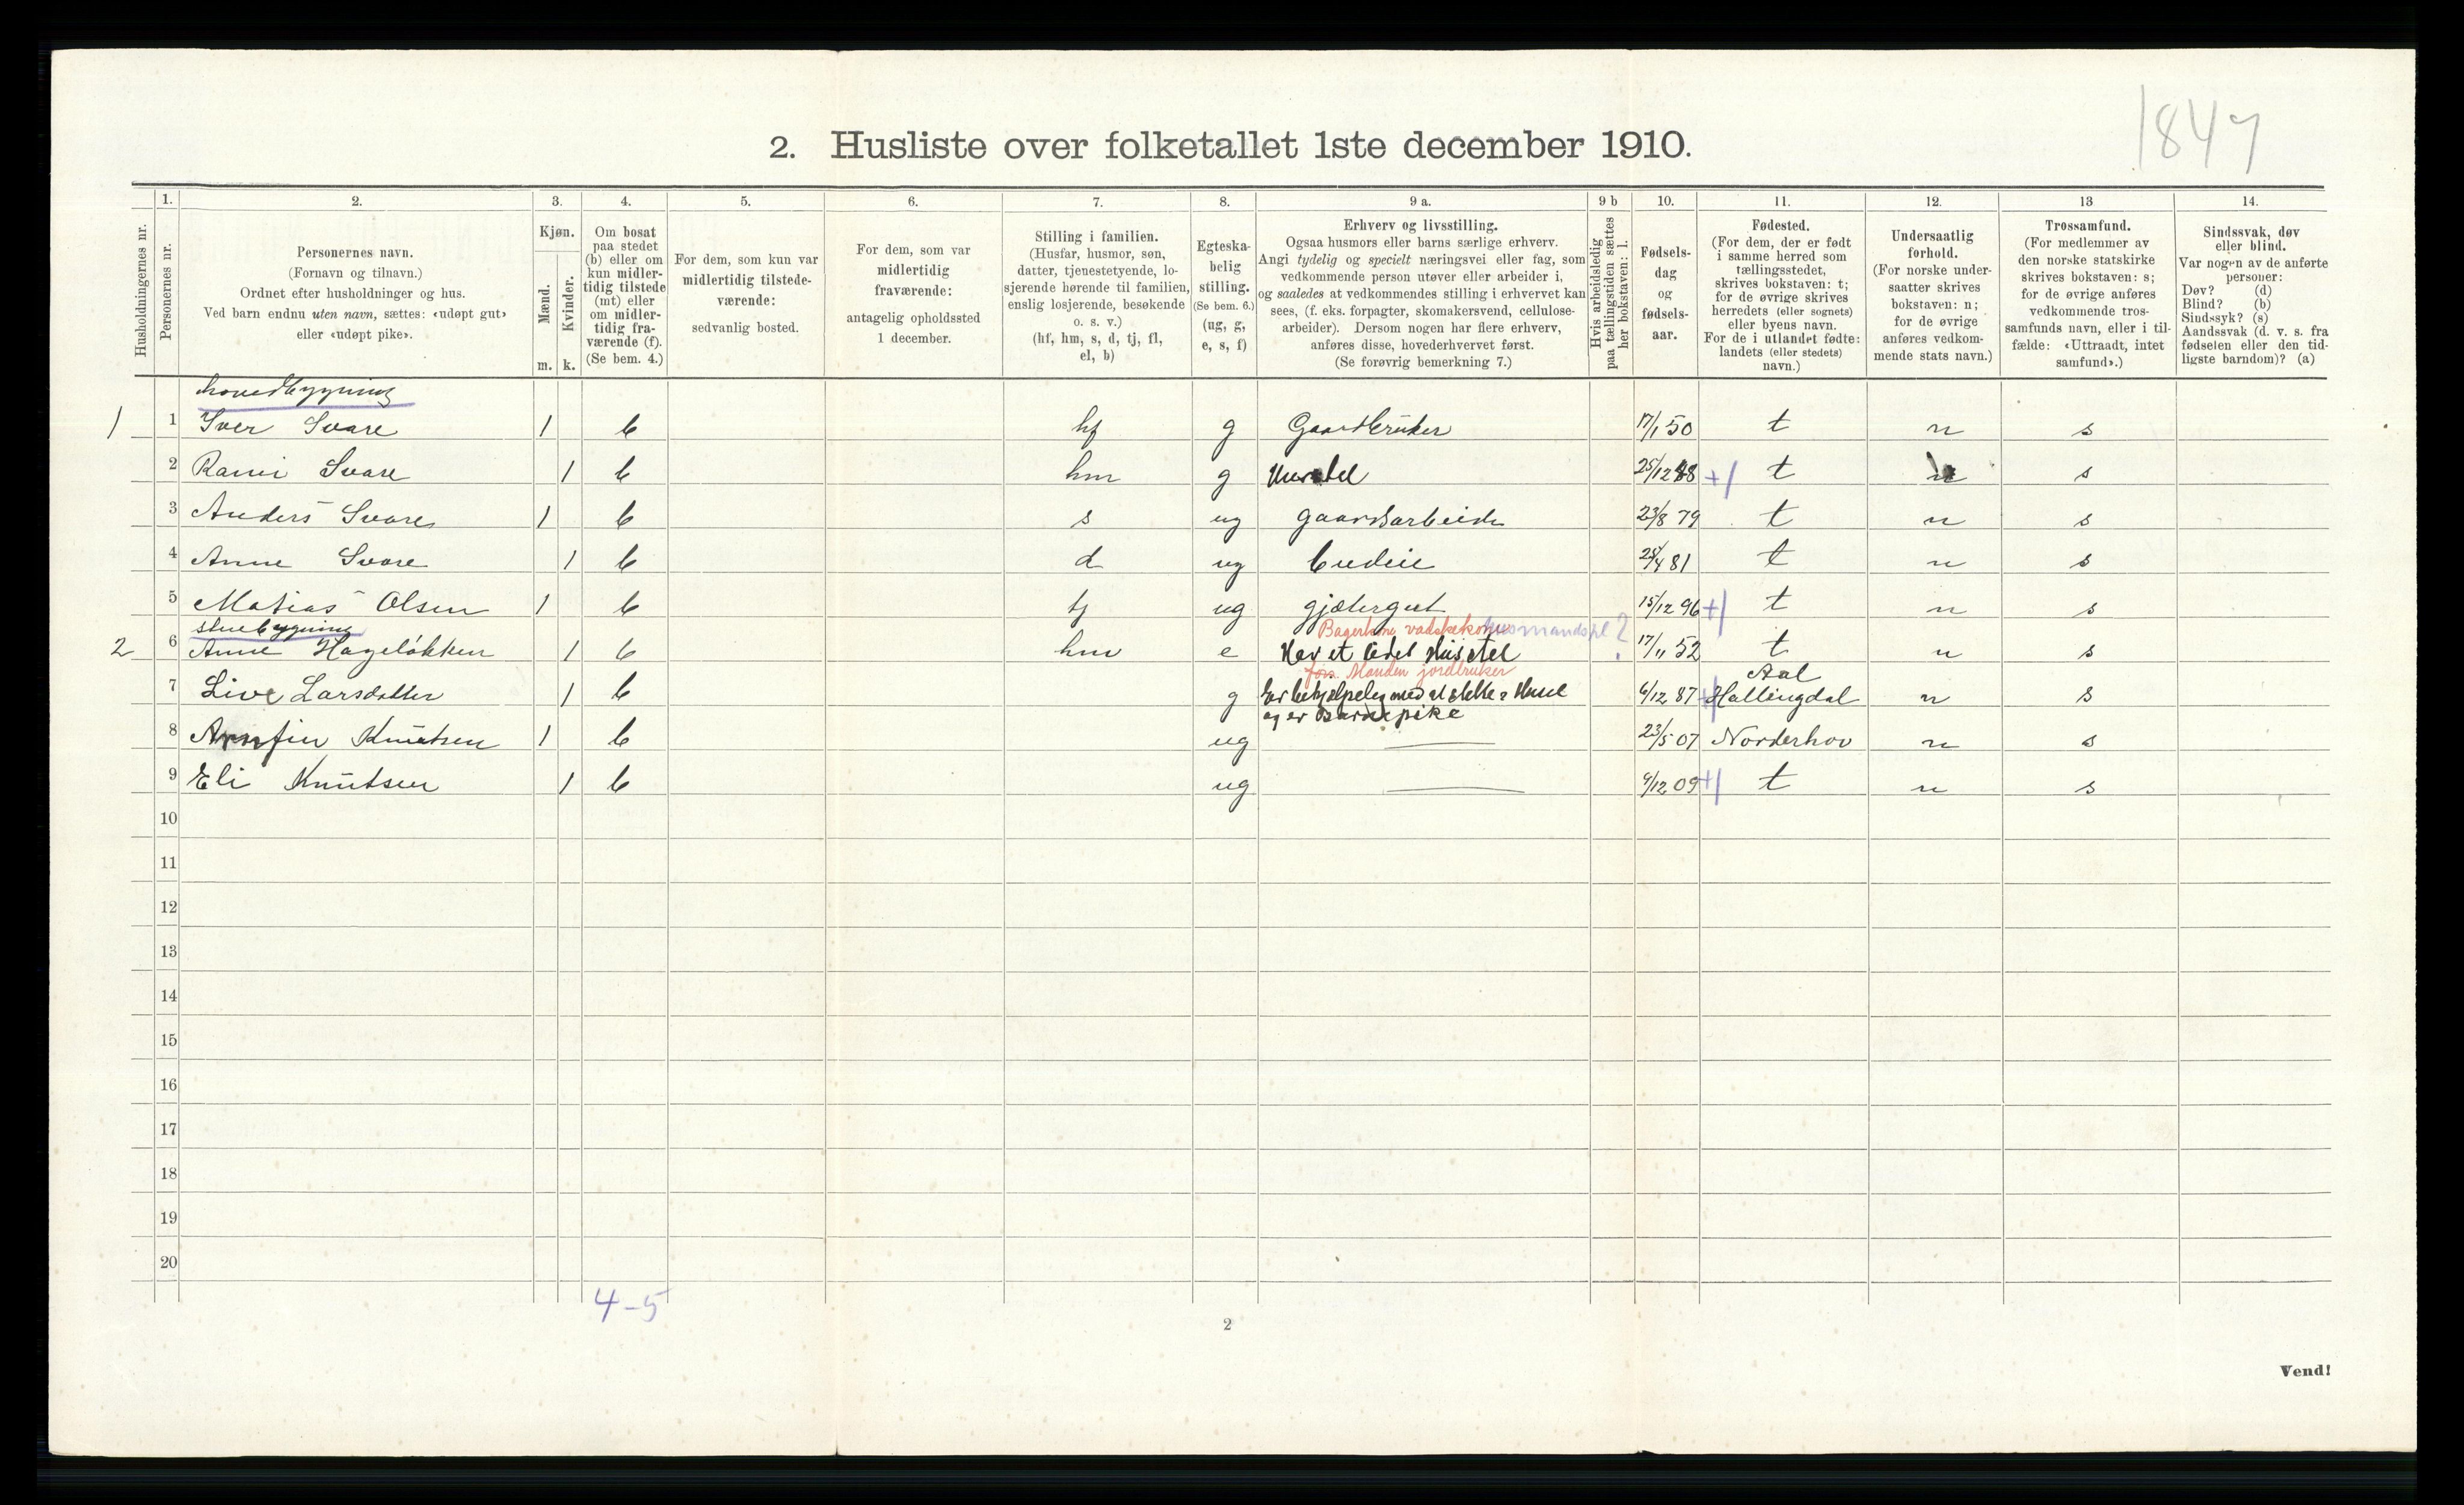 1847
2. Husliste over folketallet 1ste december 1910.
Husholdningernes nr.
1. Personernes nr.
2. Personernes navn. (Fornavn og tilnavn.) Ordnet efter husholdninger og hus. Ved barn endnu uten navn, sættes: «udøpt gut» eller «udøpt pike».
3. Kjøn. Mænd. m. Kvinder. k.
4. Om bosat paa stedet (b) eller om kun midlertidig tilstede (mt) eller om midlertidig fraværende (f). (Se bem. 4.)
5. For dem, som kun var midlertidig tilstedeværende: sedvanlig bosted.
6. For dem, som var midlertidig fraværende: antagelig opholdssted 1 december.
7. Stilling i familien. (Husfar, husmor, søn, datter, tjenestetyende, losjerende hørende til familien, enslig losjerende, besøkende o. s. v.) (hf, hm, s, d, tj, fl, el, b)
8. Egteskabelig stilling. (Se bem. 6.) (ug, g, e, s, f)
9 a. Erhverv og livsstilling. Ogsaa husmors eller barns særlige erhverv. Angi tydelig og specielt næringsvei eller fag, som vedkommende person utøver eller arbeider i, og saaledes at vedkommendes stilling i erhvervet kan sees, (f. eks. forpagter, skomakersvend, cellulosearbeider). Dersom nogen har flere erhverv, anføres disse, hovederhvervet først. (Se forøvrig bemerkning 7.)
9 b Hvis arbeidsledig paa tællingstiden sættes her bokstaven: l.
10. Fødselsdag og fødselsaar.
11. Fødested. (For dem, der er født i samme herred som tællingsstedet, skrives bokstaven: t; for de øvrige skrives herredets (eller sognets) eller byens navn. For de i utlandet fødte: landets (eller stedets) navn.)
12. Undersaatlig forhold. (For norske undersaatter skrives bokstaven: n; for de øvrige anføres vedkommende stats navn.)
13 Trossamfund. (For medlemmer av den norske statskirke skrives bokstaven: s; for de øvrige anføres vedkommende trossamfunds navn, eller i tilfælde: «Uttraadt, intet samfund».)
14. Sindssvak, døv eller blind. Var nogen av de anførte personer: Døv? (d) Blind? (b) Sindssyk? (s) Aandssvak (d. v. s. fra fødselen eller den tidligste barndom)? (a)
hovedbygning
1 1 Iver Svare 1 b hf g Gaardbruker 17/1 50 t n s
2 Svare 1 b hm g 25/12 48 +| t n s
3 Anders Svare 1 b s ug gaardsarbeide 23/8 79 t n s
4 Anne Svare 1 b d ug budeie 81 t n s
5 Matias Olsen 1 b tj ug gjætergut 15/12 96 +| t n s
stuebygning
husmandspl ?
2 6 Anne Hageløkken 1 b hm e Har et Huststel 17/11 52 t n s
Manden jordbruker
Aal
7 Live Larsdatter 1 b g 6/12 87 +| Hallingdal n s
og er Barnepike
8 Arnfin Knutsen 1 b ug — 23/5 07 Norderhov n s
9 Eli Knutsen 1 b ug — /12 09 +| t n s
10
11
12
13
14
15
16
17
18
19
20
4-5
2
Vend!